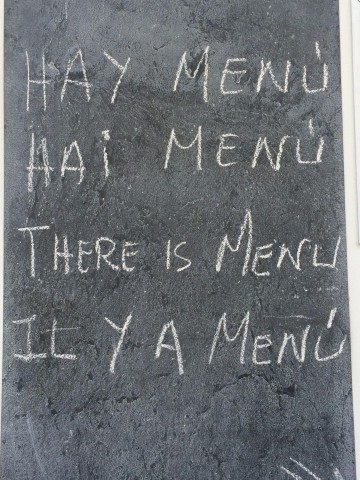 HAY MENÚ
HAI MENÚ
THERE IS MENU
IL Y A MENÚ